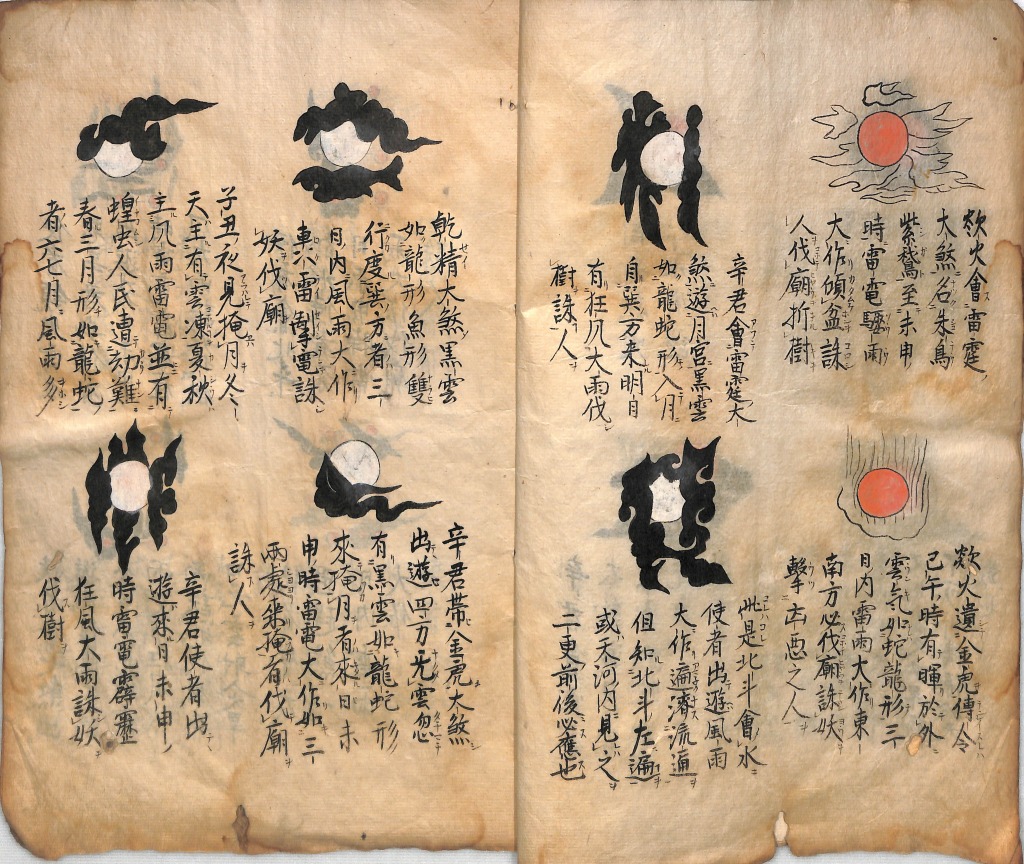 欻火會雷霆
大煞名朱鳥
紫鵞至未申
時雷電驟雨
大作傾盆誅
人伐廟折樹
欻火遣金虎傳令
己午時有暉於外
雲气如蛇龍形三
日內雷雨大作東
南方必伐廟誅妖
擊古惡之人
辛君會雷霆大
煞遊月宮黑雲
如龍蛇形入月
自巽方来明日
有狂风大雨伐
樹誅人
此是北斗會水
使者出遊風雨
大作遍濟流通
但知北斗左遍
或天河內見之
二更前後必應也
乾精大煞黑雲
如龍形魚形雙
行度巽方者三
日內風雨大作
車心雷擊電誅
妖伐廟
辛君帶金虎大煞
出遊四方无雲忽
有黑雲如龍蛇形
來掩月者來日未
申時雷電大作如三
兩處來掩有伐廟
誅人
子丑夜見掩月冬
天主有雲凍夏秋
主风雨雷電並有
蝗虫人民遭劫難
春三月形如龍蛇
者六七月風雨多
辛君使者出
遊來日未申
時雷電霹靂
狂風大雨誅妖
伐樹